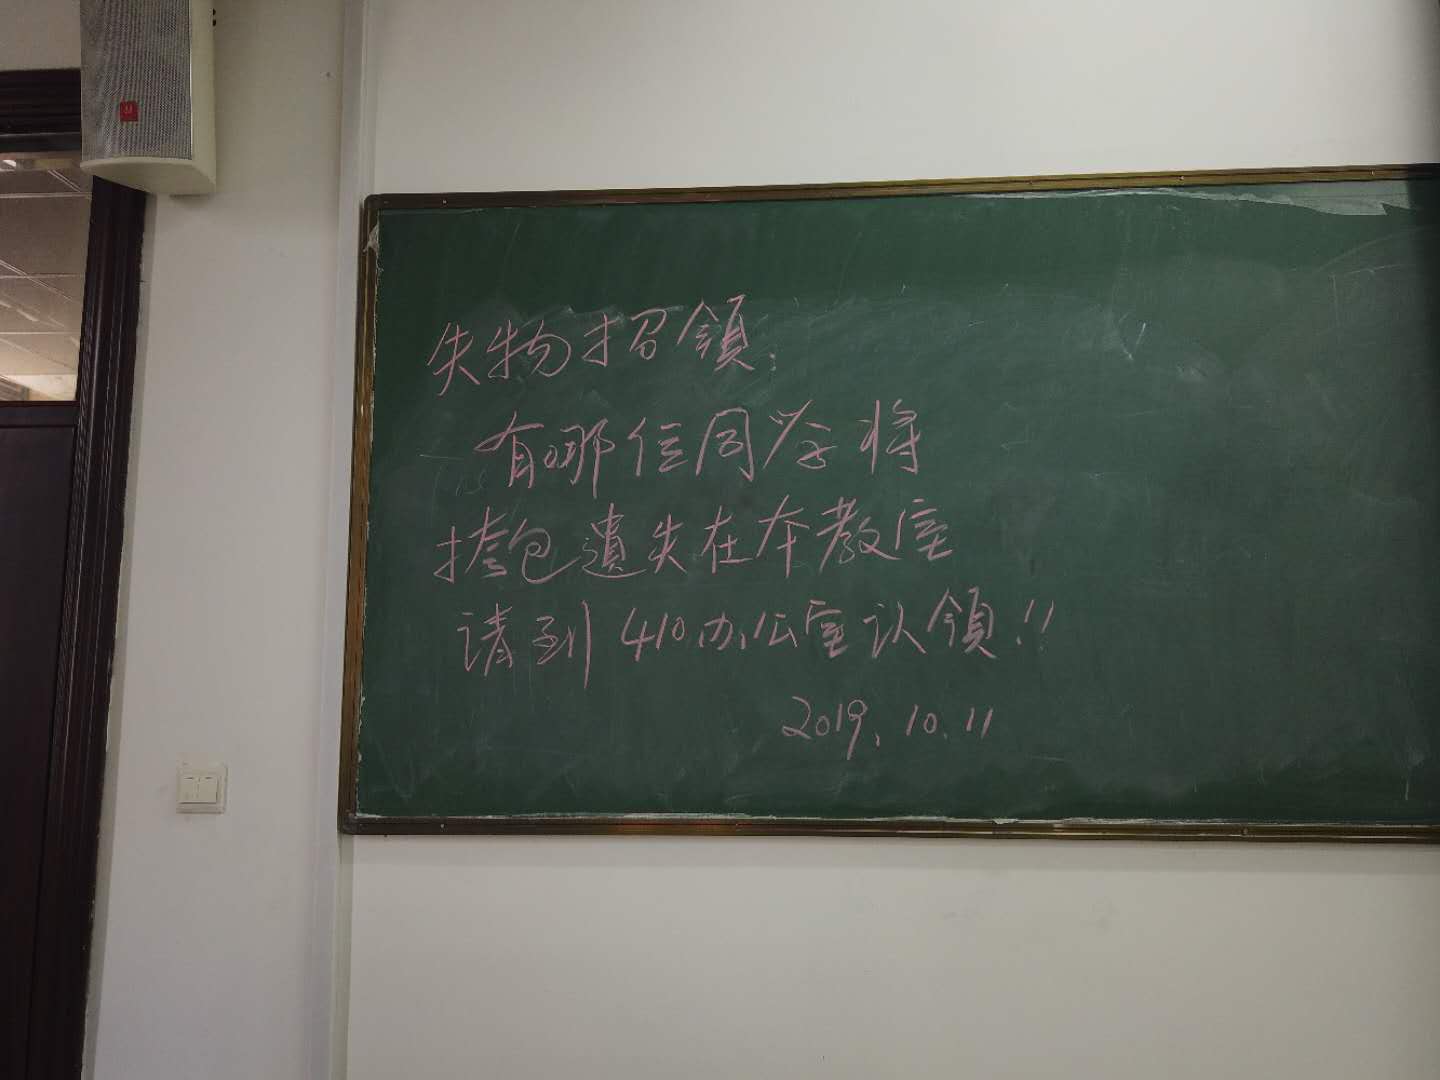 失物招領:
有哪位同学将
挎包遺失在本教室
请到410办公室认領!!
2019.10.11